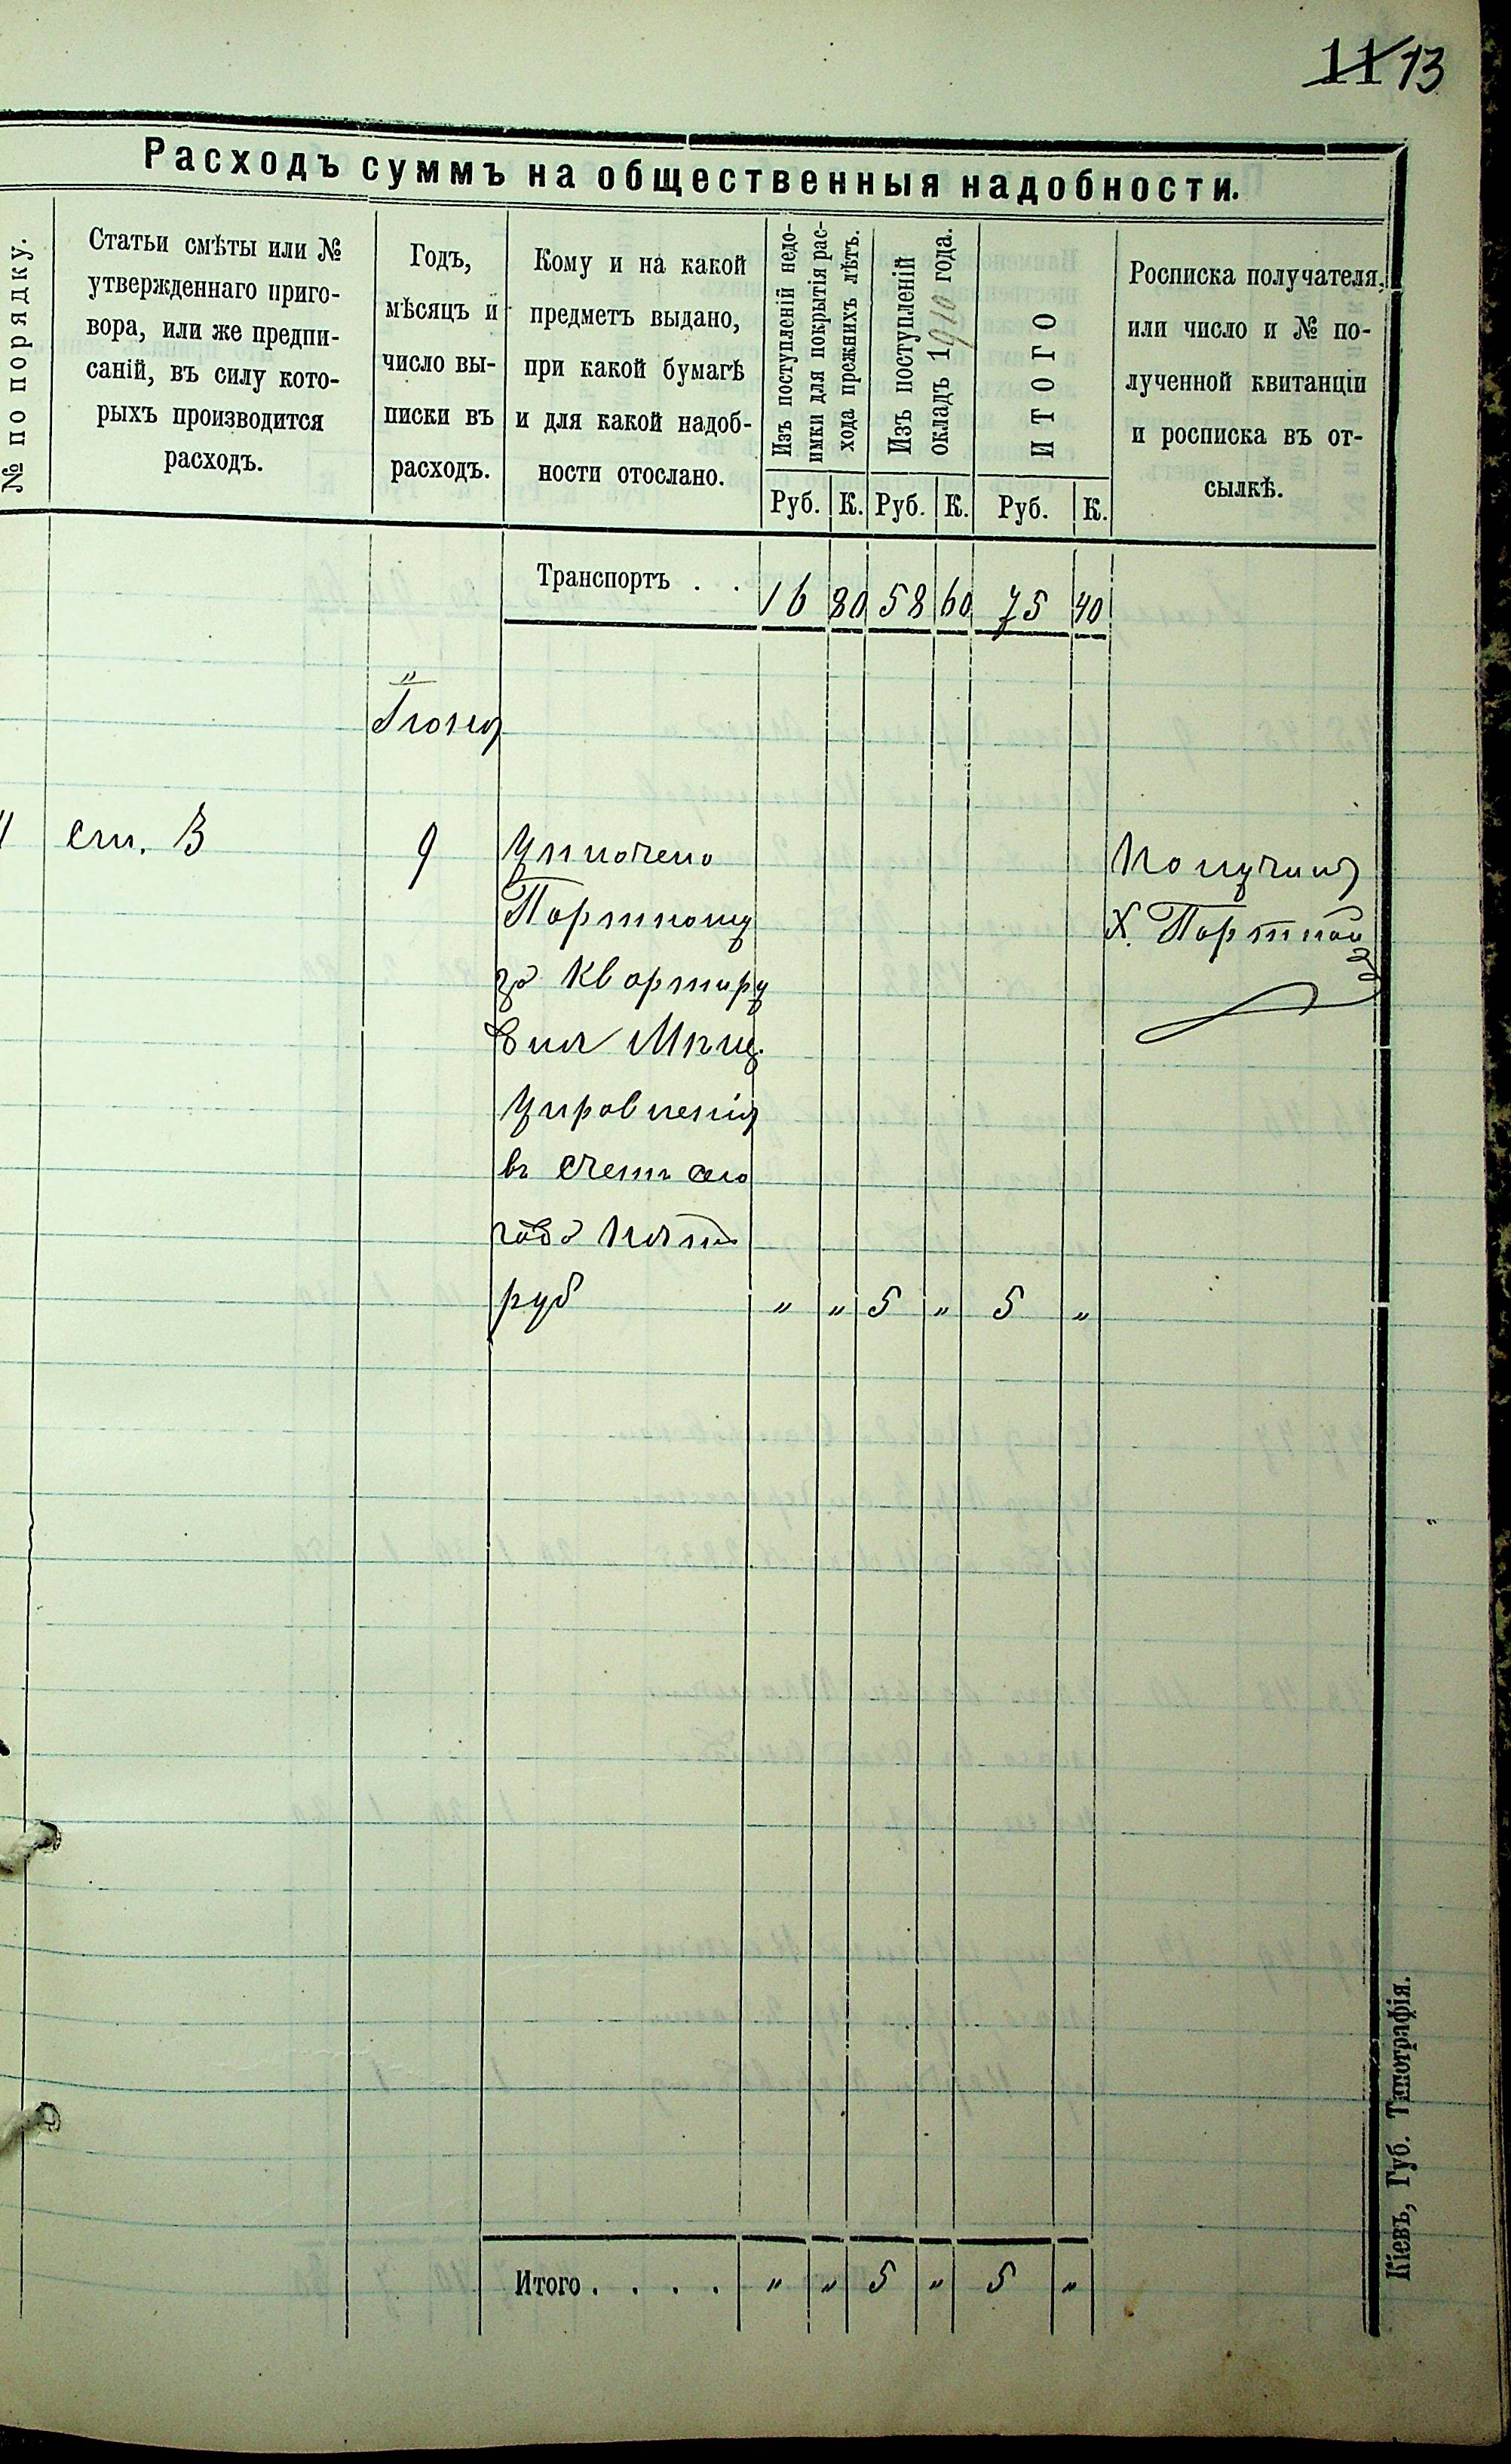 11 13
Расходъ суммъ на общественныя надобности.
№ по порядку.
Статьи смѣты или №
утвержденнаго приго-
вора, или же предпи-
саній, въ силу кото-
рыхъ производится
расходъ.
Годъ,
мѣсяцъ и
число вы-
писки въ
расходъ.
Кому и на какой
предметъ выдано,
при какой бумагѣ
и для какой надоб-
ности отослано.
Изъ поступленій недо-
имки для покрытія рас-
хода прежнихъ лѣтъ.
Изъ поступленій
окладъ 1910 года.
ИТОГО
Росписка получателя,
или число и № по-
лученной квитанціи
и росписка въ от-
сылкѣ.
Руб. К. Руб. К. Руб. К.
Транспортъ . . 16 80 58 60 75 40
Іюня
ст. 3 9 Уплочено
Портному
за квартиру
для Мѣщ.
Управленія
въ счетъ сего
года пять
руб " " 5 " 5 "
Получилъ
Х. Портной
Итого . . . . " " 5 " 5 "
Кіевъ, Губ. Типографія.